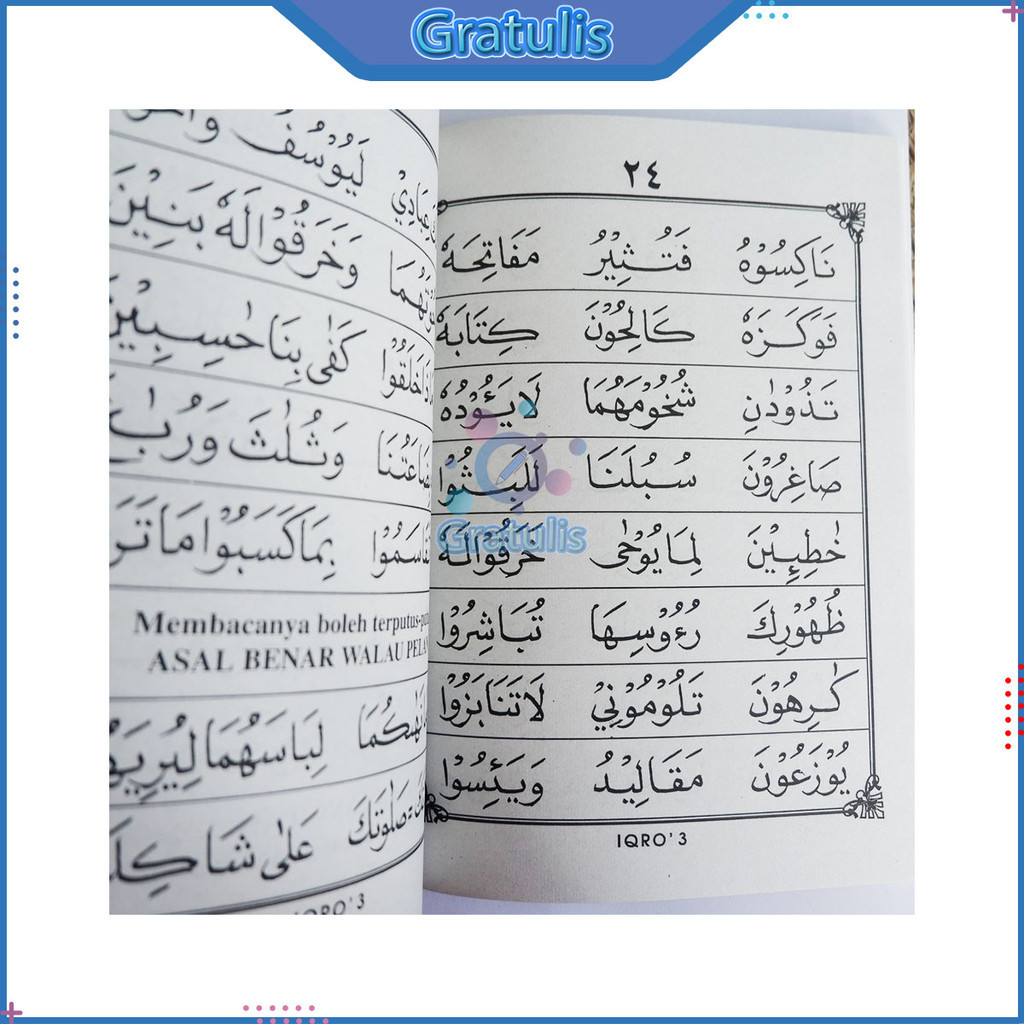 Gratulis
لَيُوْسُفُ
عِبَادِيْ
وَخَرَقُوْالَهٗ بَنِيْنَ
كَفٰى بِنَا حٰسِبِيْنَ
وَثُلٰثَ وَرُبٰعَ
بِمَا كَسَبُوْا مَا تَرَ
Membacanya boleh terputus-pu
ASAL BENAR WALAU PELA
لِبَاسَهُمَا لِيُرِيَهُ
عَلٰى شَاكِلَ
IQRO' 3
٢٤
نَاكِسُوْهُ فَتُثِيْرُ مَفَاتِحَهٗ
فَوَكَزَهٗ كَالِحُوْنَ كِتَابَهٗ
تَذُوْدٰنِ شُحُوْمَهُمَا لَا يَئُوْدُهٗ
صَاغِرُوْنَ سُبُلَنَا لَلَبِثُوْا
خٰطِئِيْنَ لِمَا يُوْحٰى خَرَقُوْالَهٗ
ظُهُوْرِكَ رُءُوْسِهَا تُبَاشِرُوْا
كٰرِهُوْنَ تَلُوْمُوْنِيْ لَا تَنَابَزُوْا
يُوْزَعُوْنَ مَقَالِيْدُ وَيَئِسُوْا
Gratulis
IQRO' 3